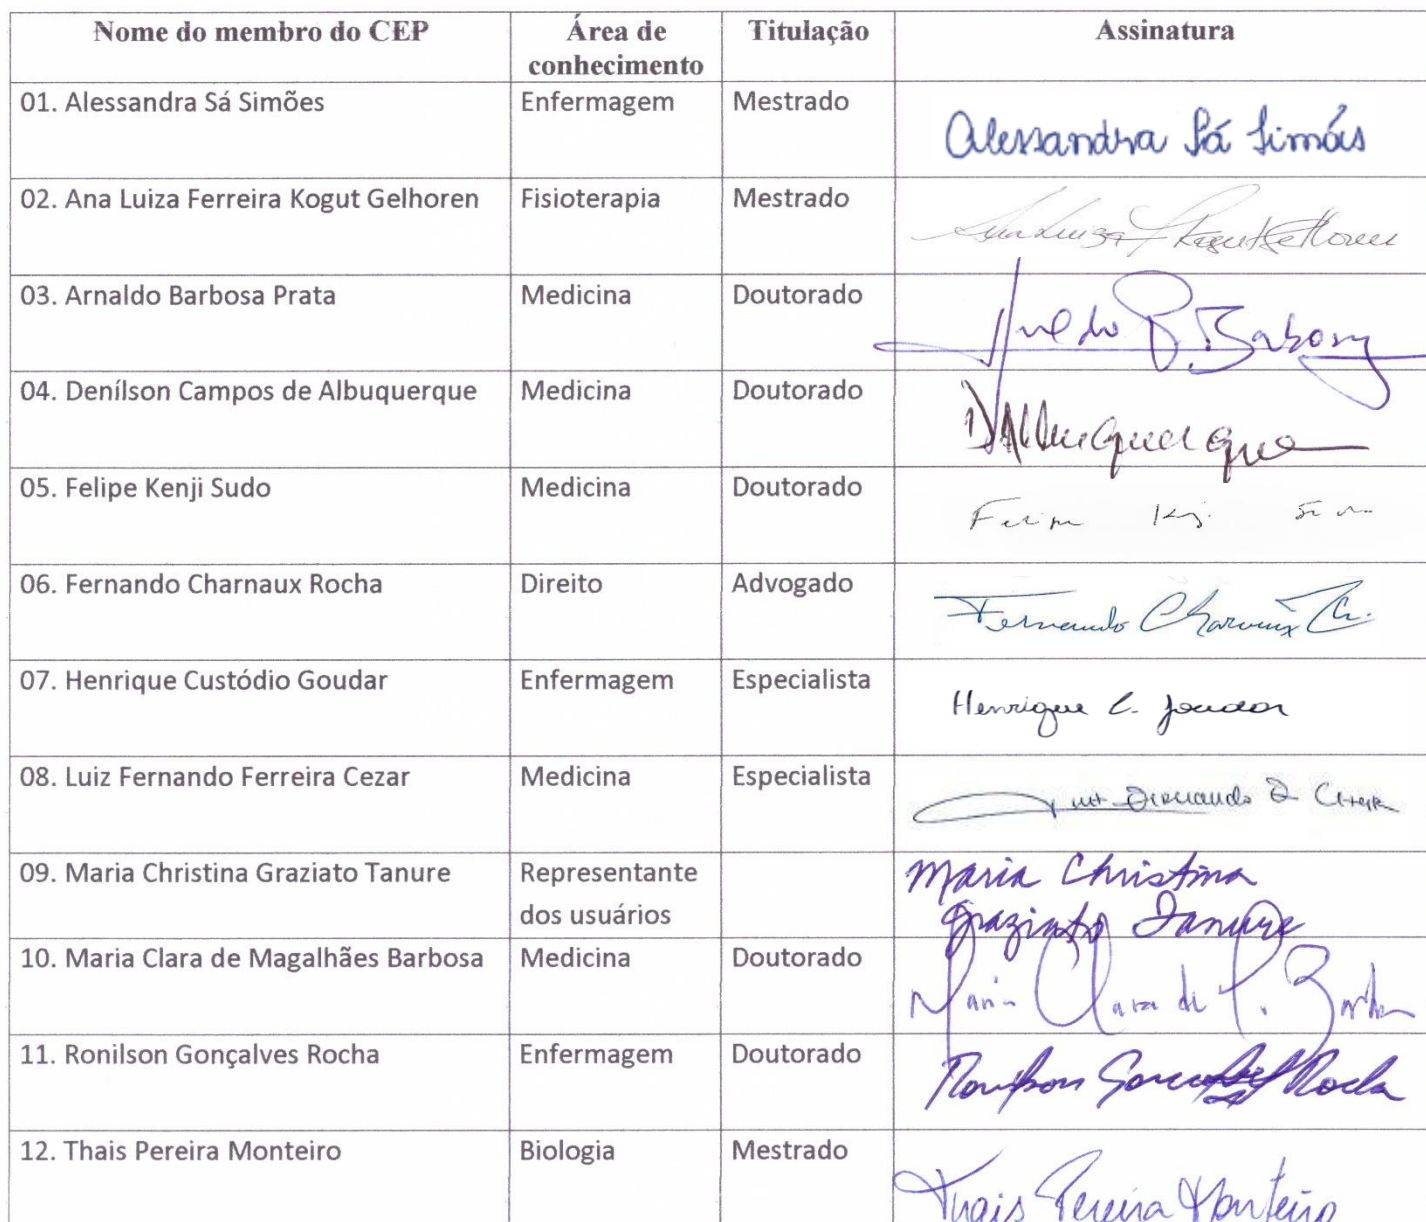 Nome do membro do CEP Área de conhecimento Titulação Assinatura
01. Alessandra Sá Simões Enfermagem Mestrado Alessandra Sá Simões
02. Ana Luiza Ferreira Kogut Gelhoren Fisioterapia Mestrado
03. Arnaldo Barbosa Prata Medicina Doutorado
04. Denílson Campos de Albuquerque Medicina Doutorado DAlbuquerque
05. Felipe Kenji Sudo Medicina Doutorado
06. Fernando Charnaux Rocha Direito Advogado Fernando Charnaux
07. Henrique Custódio Goudar Enfermagem Especialista Henrique C. Goudar
08. Luiz Fernando Ferreira Cezar Medicina Especialista
09. Maria Christina Graziato Tanure Representante dos usuários Maria Christina
Graziato Tanure
10. Maria Clara de Magalhães Barbosa Medicina Doutorado Maria Clara de M. Barbosa
11. Ronilson Gonçalves Rocha Enfermagem Doutorado Ronilson Rocha
12. Thais Pereira Monteiro Biologia Mestrado Thais Pereira Monteiro